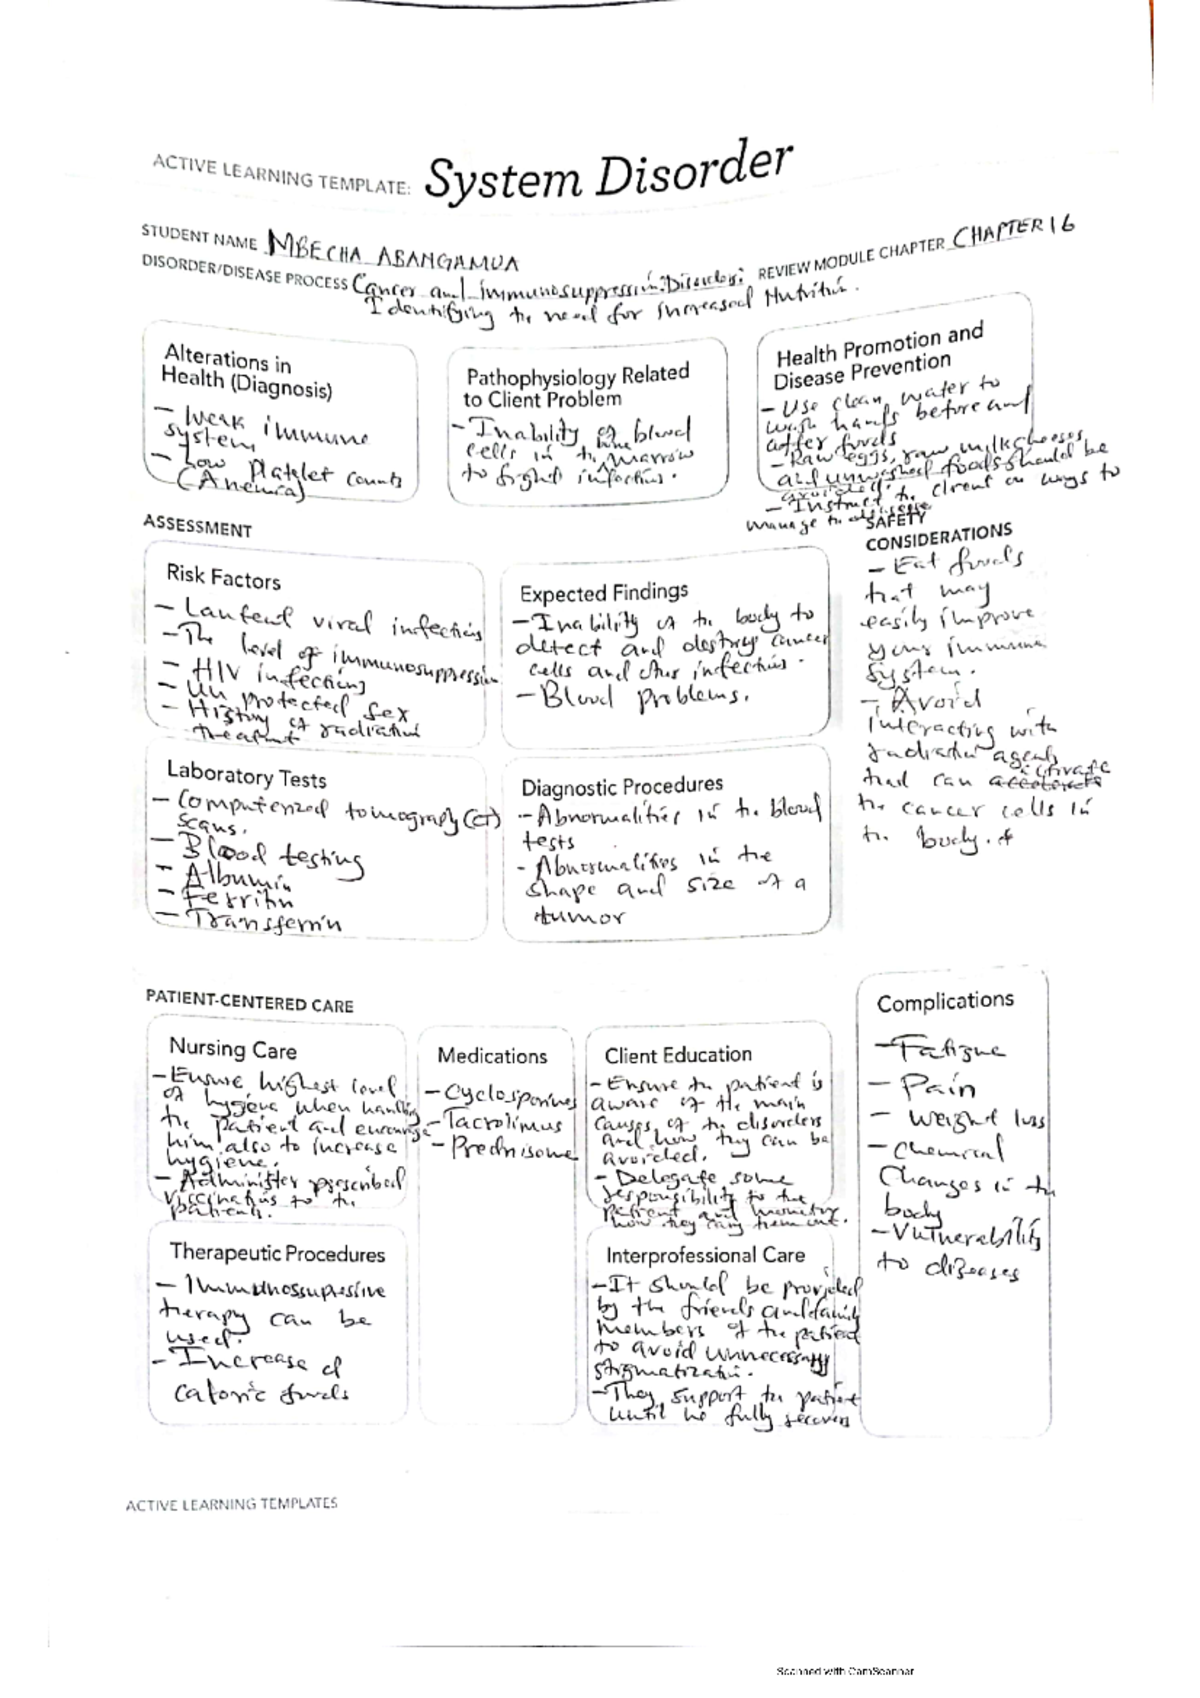 ACTIVE LEARNING TEMPLATE: System Disorder
STUDENT NAME MBECHA ABANGAMUA
DISORDER/DISEASE PROCESS Cancer and immunosuppression Disorders:
REVIEW MODULE CHAPTER CHAPTER 16
Identifying the need for increased Nutrition.
Alterations in
Health (Diagnosis)
- Weak immune
system
- Low Platelet counts
(Anemia)
Pathophysiology Related
to Client Problem
- Inability of blood
cells in the bone marrow
to fight infections.
Health Promotion and
Disease Prevention
- Use clean water to
wash hands before and
after foods
- Raw eggs, raw milk cheeses
and unwashed foods should be
avoided.
- Instruct the client on ways to
manage the disease
ASSESSMENT
SAFETY
CONSIDERATIONS
- Eat foods
that may
easily improve
your immune
system.
- Avoid
interacting with
radiation agents
that can activate
the cancer cells in
the body.
Risk Factors
- Laufent viral infections
- The level of immunosuppression
- HIV infections
- Un protected sex
- History of radiation
treatment
Expected Findings
- Inability of the body to
detect and destroy cancer
cells and other infections.
- Blood problems.
Laboratory Tests
- Computerized tomography (CT)
scans.
- Blood testing
- Albumin
- Ferritin
- Transferrin
Diagnostic Procedures
- Abnormalities in the blood
tests
- Abnormalities in the
shape and size of a
tumor
PATIENT-CENTERED CARE
Nursing Care
- Ensure highest level
of hygiene when handling
the patient and encourage
him also to increase
hygiene.
- Administer prescribed
vaccinations to the
patients.
Medications
- Cyclosporines
- Tacrolimus
- Prednisome
Client Education
- Ensure the patient is
aware of the main
causes of the disorders
and how they can be
avoided.
- Delegate some
responsibility to the
patient and monitor
how they carry them out.
Complications
- Fatigue
- Pain
- Weight loss
- Chemical
Changes in the
body
- Vulnerability
to diseases
Therapeutic Procedures
- Immunossupressive
therapy can be
used.
- Increase of
caloric foods
Interprofessional Care
- It should be provided
by the friends and family
members of the patient
to avoid unnecessary
stigmatization.
- They support the patient
until he fully recovers
ACTIVE LEARNING TEMPLATES
Scanned with CamScanner